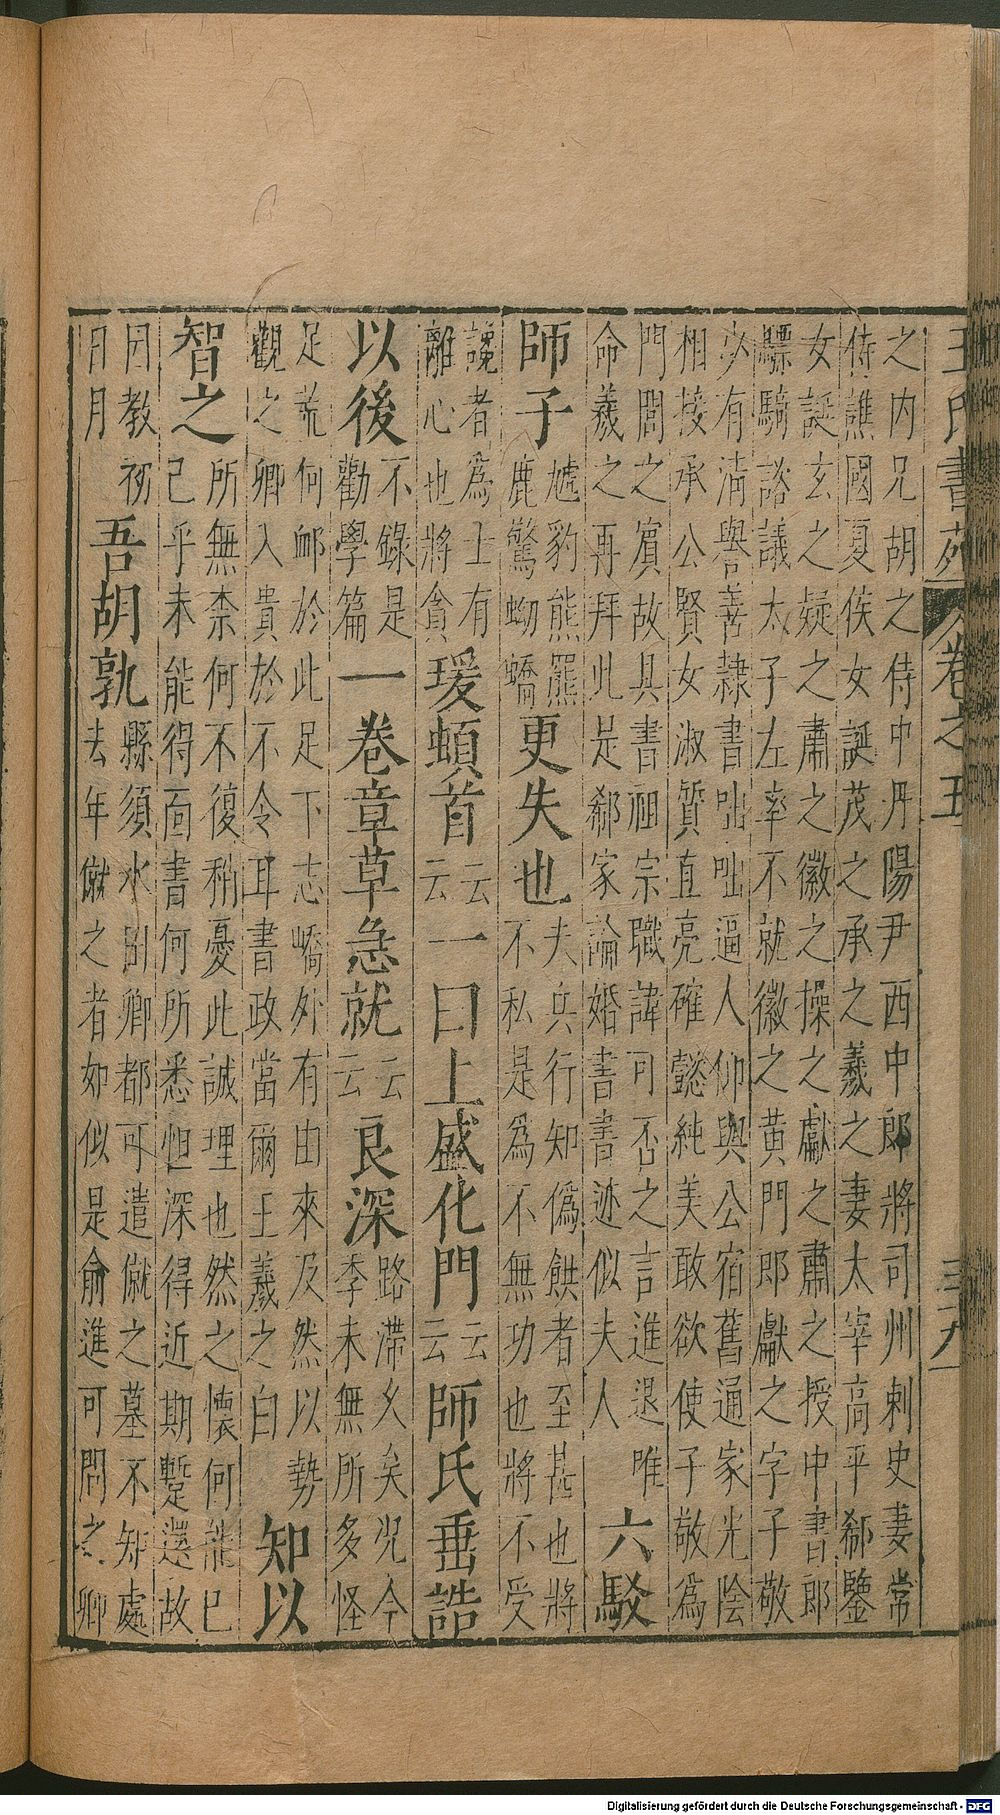 王氏書苑 卷之五 三十九
之内兄胡之侍中丹陽尹西中郎將司州刺史妻常
侍譙國夏侯女誕茂之承之羲之妻太宰高平郗鑒
女誕玄之疑之肅之徽之操之獻之肅之授中書郎
驃騎諮議太子左率不就徽之黃門郎獻之字子敬
少有清譽善隸書咄咄逼人仰與公宿舊通家光陰
相接承公賢女淑質直亮確懿純美敢欲使子敬爲
門閭之賔故具書祖宗職諱可否之言進退唯
命羲之再拜此是郗家論婚書書迹似夫人
六駁
師子
豹熊羆
鹿驚蚴蟜
更失也
夫兵行知僞餌者至甚也將
不私是爲不無功也將不受
讒者爲士有
離心也將貪
瑗頓首
云
云
一曰上盛化門
云
云
師氏垂誥
以後
不錄是
勸學篇
一卷章草急就
云
云
良深
路滯久矣況今
季未無所多怪
足荒何邮於此足下志嶠外有由來及然以勢
觀之卿入貴於不令耳書政當爾王羲之白
知以
智之
所無柰何不復稍憂此誠理也然之懷何能已
己乎未能得面書何所悉怛深得近期蹔還故
因教初
日月
吾胡孰
縣須水卿都可遣僦之墓不知處
去年僦之者如似是俞進可問之卿
Digitalisierung gefördert durch die Deutsche Forschungsgemeinschaft - DFG